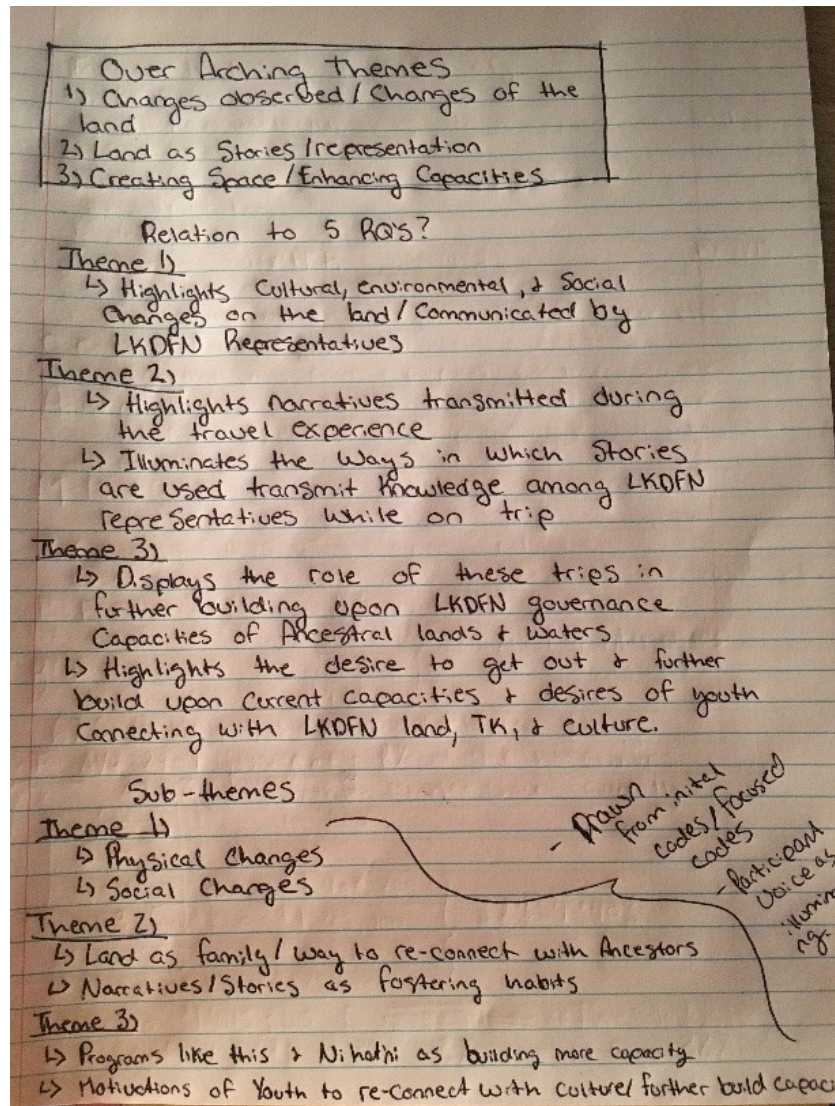 Over Arching themes
1) Changes observed / Changes of the
land
2) Land as Stories /representation
3) Creating Space / Enhancing Capacities
Relation to 5 RQ's?
Theme 1)
↳ Highlights Cultural, environmental, & Social
Changes on the land / Communicated by
LKDFN Representatives
Theme 2)
↳ Highlights narratives transmitted during
the travel experience
↳ Illuminates the ways in which Stories
are used transmit knowledge among LKDFN
representatives while on trip
Theme 3)
↳ Displays the role of these trips in
further building upon LKDFN governance
Capacities of Ancestral lands & waters
↳ Highlights the desire to get out & further
build upon current capacities & desires of youth
Connecting with LKDFN land, TK, & culture.
Sub-themes
Theme 1)
↳ Physical Changes
↳ Social Changes
- Drawn
from inital
codes / focused
codes
- Participant
Voice as
illumin
ng.
Theme 2)
↳ Land as family / way to re-connect with Ancestors
↳ Narratives / Stories as fostering habits
Theme 3)
↳ Programs like this & Ni hat'ni as building more capacity
↳ Motivations of Youth to re-connect with culture/ further build capac